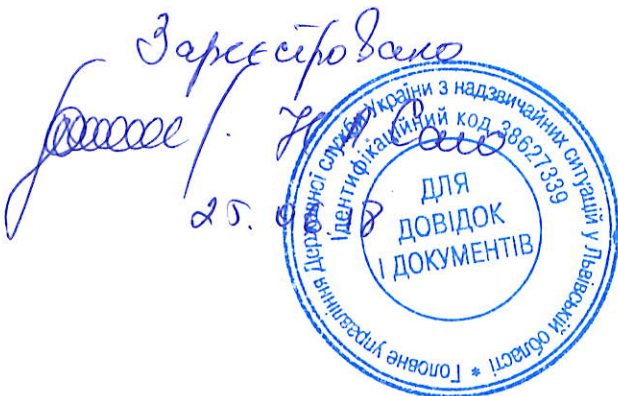 Зареєстровано
25.
Головне управління Державної служби України з надзвичайних ситуацій у Львівській області *
Ідентифікаційний код 38627339
ДЛЯ
ДОВІДОК
І ДОКУМЕНТІВ